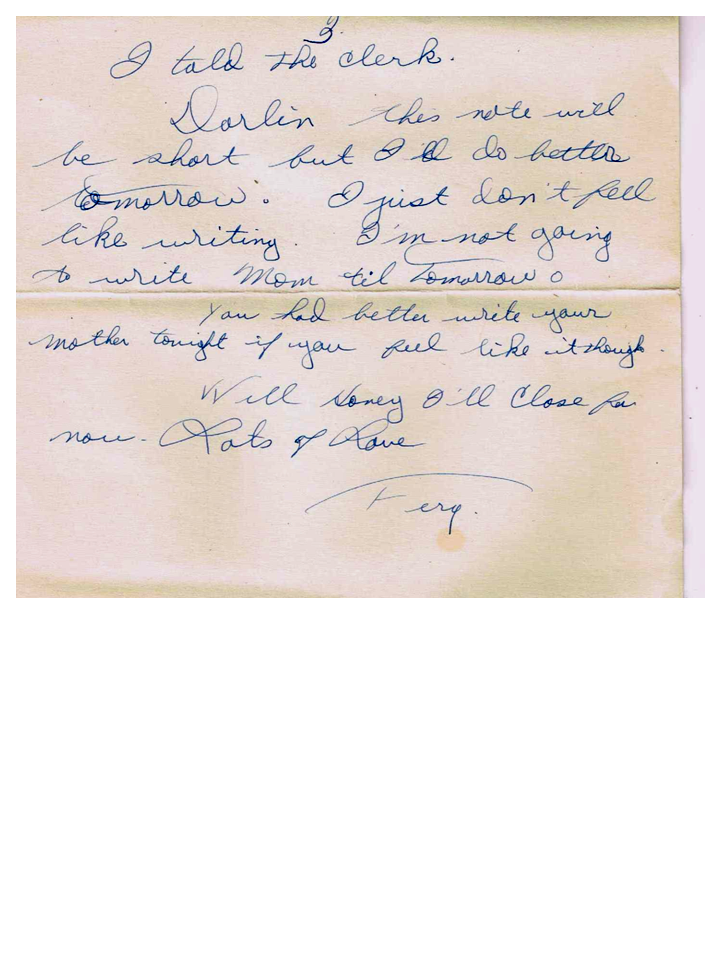 3.
I told the clerk.
Darlin this note will
be short but I'll do better
tomorrow. I just don't feel
like writing. I'm not going
to write Mom til tomorrow.
You had better write your
mother tonight if you feel like it though.
Will Honey I'll Close for
now. Lots of Love
Ferg.